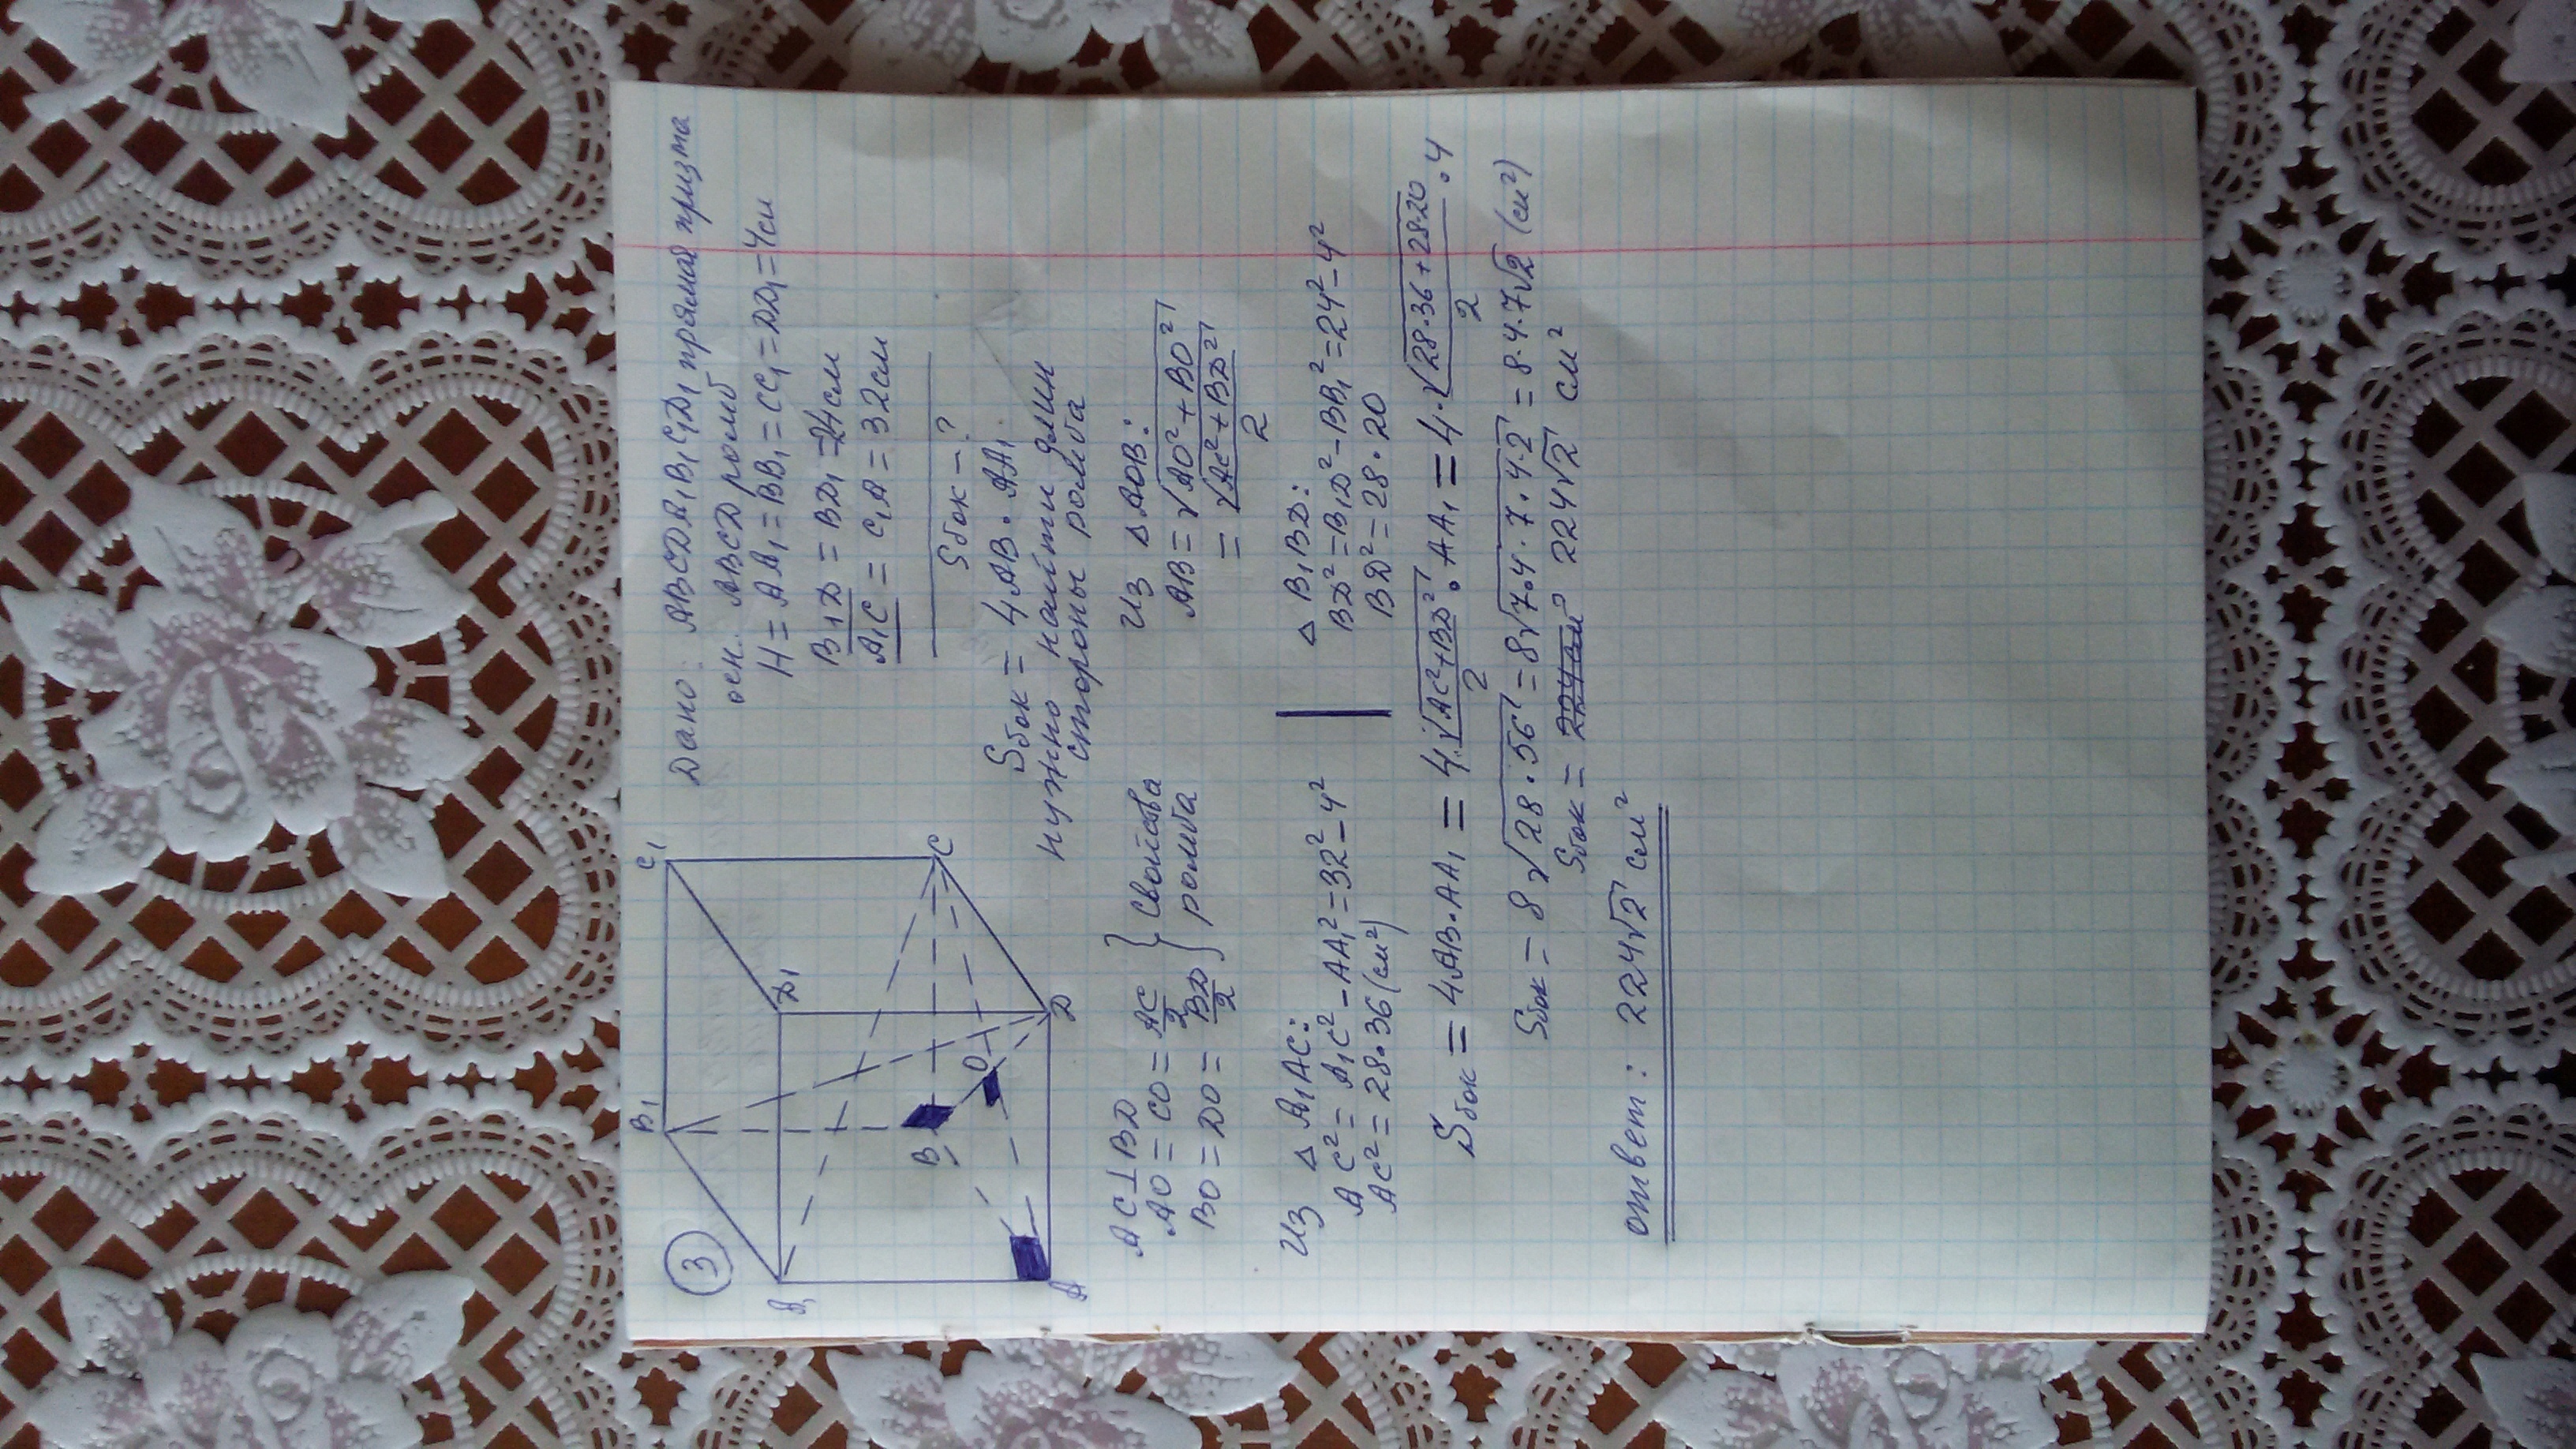 3
B₁
C₁
A₁
D₁
B
O
C
A
D
Дано: ABCDA₁B₁C₁D₁ прямая призма
осн. ABCD ромб
H = AA₁ = BB₁ = CC₁ = DD₁ = 4см
B₁D = BD₁ = 24см
A₁C = C₁A = 32см
Sбок - ?
Sбок = 4AB · AA₁.
нужно найти длин
стороны ромба
AC ⊥ BD
AO = CO = AC/2
BO = DO = BD/2
} Свойства
ромба
Из Δ AOB:
AB = √(AO² + BO²)
= √(AC² + BD²)/2
Из Δ A₁AC:
AC² = A₁C² - AA₁² = 32² - 4²
AC² = 28·36 (см²)
Δ B₁BD:
BD² = B₁D² - BB₁² = 24² - 4²
BD² = 28·20
Sбок = 4AB·AA₁ = 4·√(AC²+BD²)/2 · AA₁ = 4·√(28·36+28·20)/2 · 4
Sбок = 8√(28·56) = 8√(7·4·7·4·2) = 8·4·7√2 (см²)
Sбок = 224см² 224√2 см²
ответ: 224√2 см²